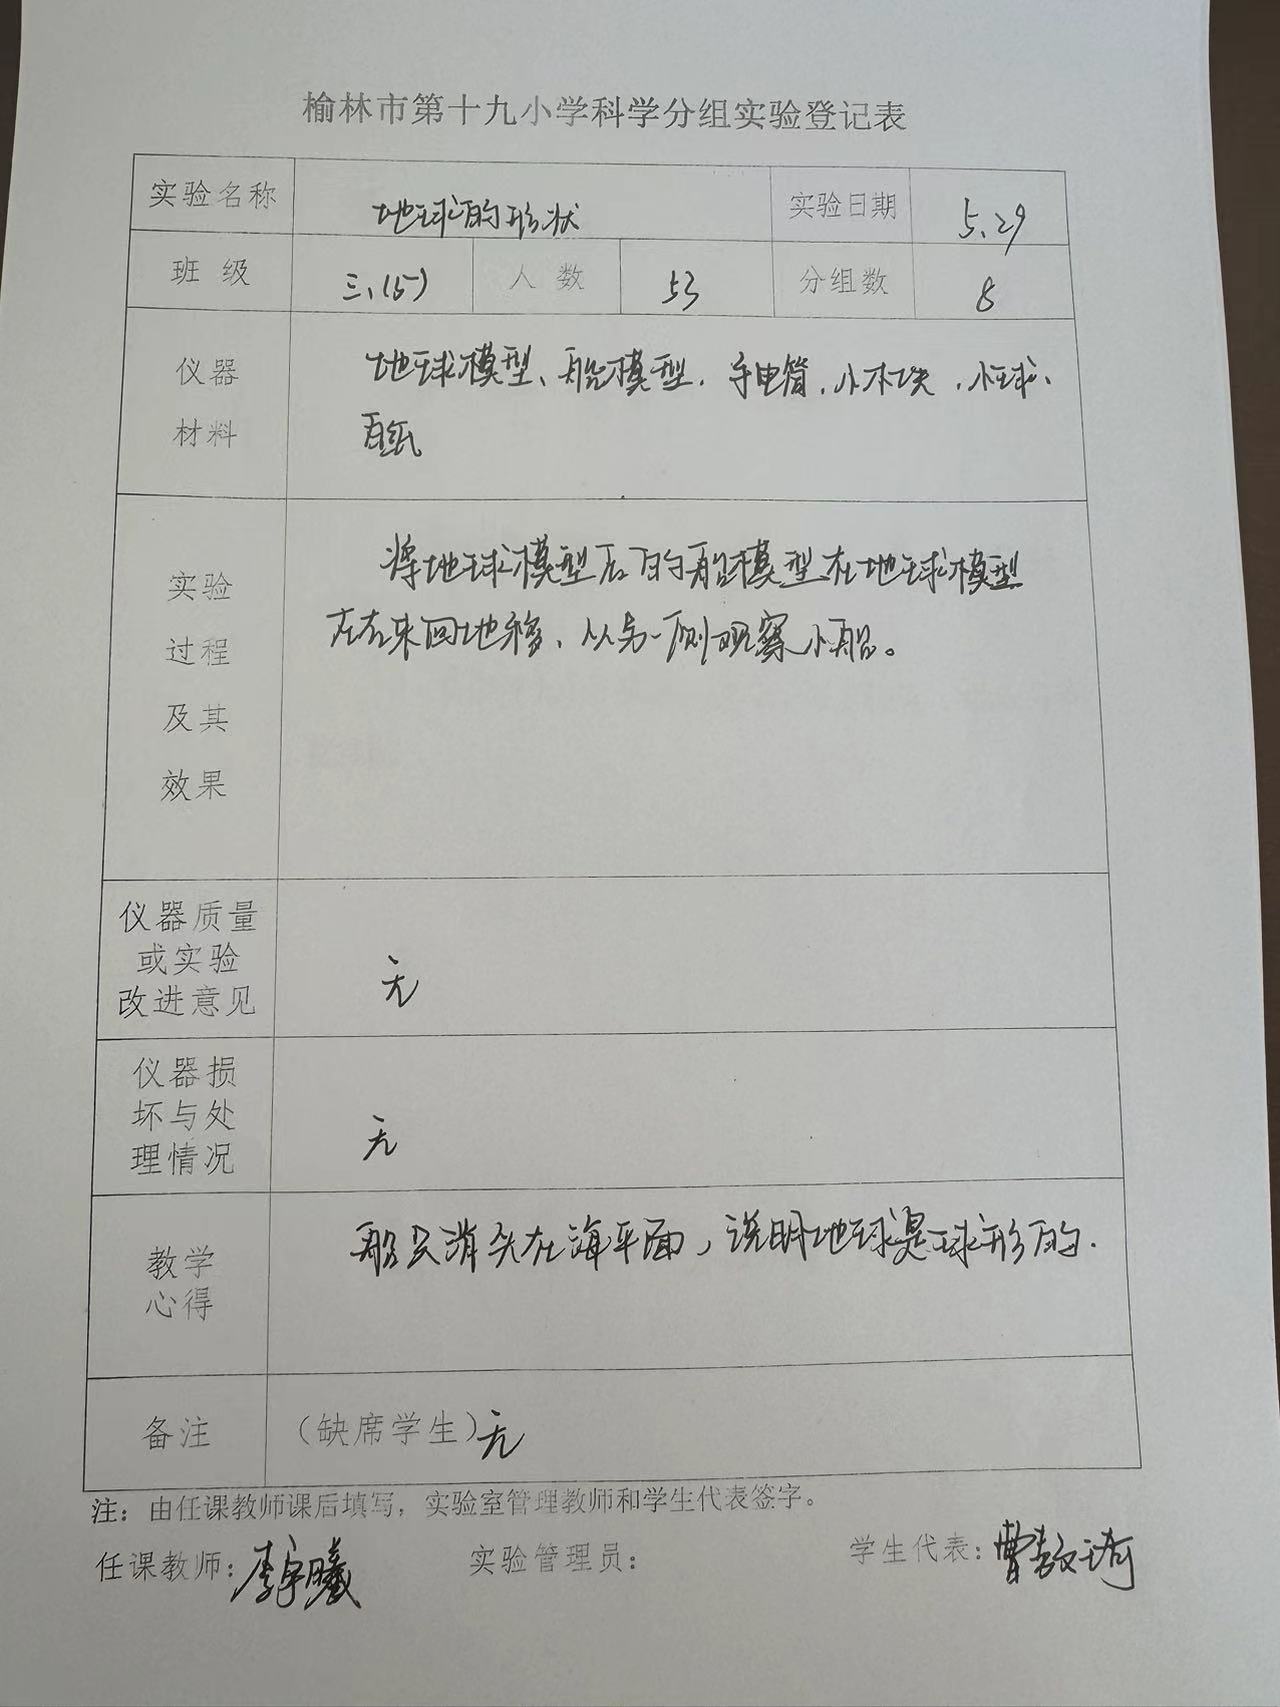 榆林市第十九小学科学分组实验登记表
实验名称 地球的形状 实验日期 5.29
班 级 三.(15) 人 数 53 分组数 8
仪器
材料
地球模型、船模型、手电筒、小木块、小球、
白纸
实验
过程
及其
效果
将地球模型后的船模型在地球模型
左右来回地移、从另一侧观察小船。
仪器质量
或实验
改进意见
无
仪器损
坏与处
理情况
无
教学
心得
船只消失在海平面，说明地球是球形的.
备注 （缺席学生）无
注：由任课教师课后填写，实验室管理教师和学生代表签字。
任课教师：李宇曦 实验管理员： 学生代表：曹